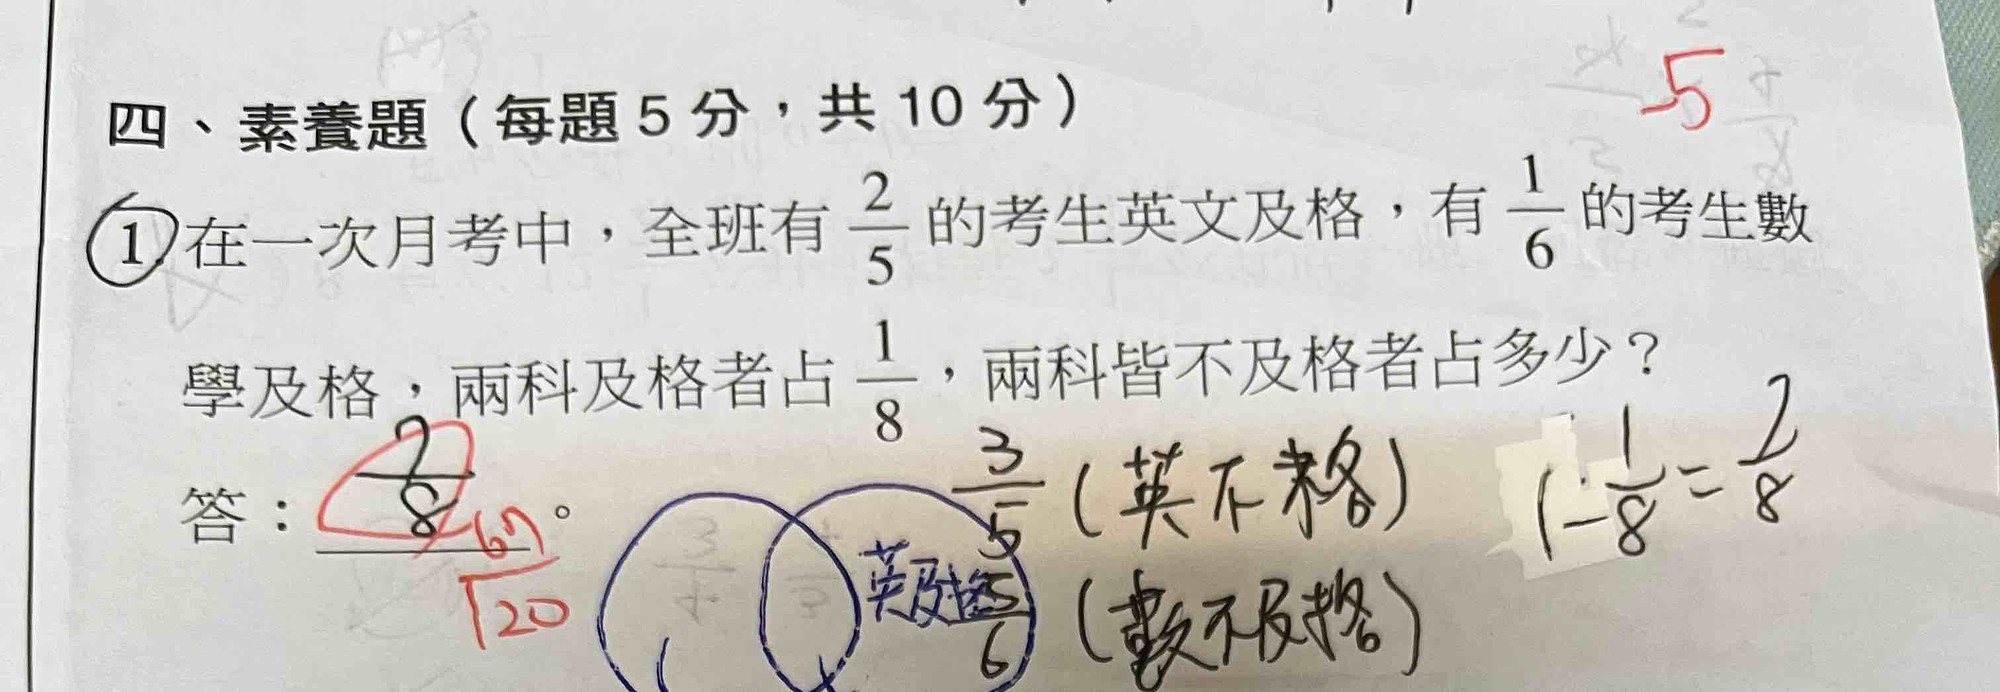 -5
四、素養題（每題5分，共10分）
1.在一次月考中，全班有 2/5 的考生英文及格，有 1/6 的考生數
學及格，兩科及格者占 1/8，兩科皆不及格者占多少？
答：7/8。
67/120
英及格
3/5（英不格）
5/6（數不及格）
1-1/8=7/8